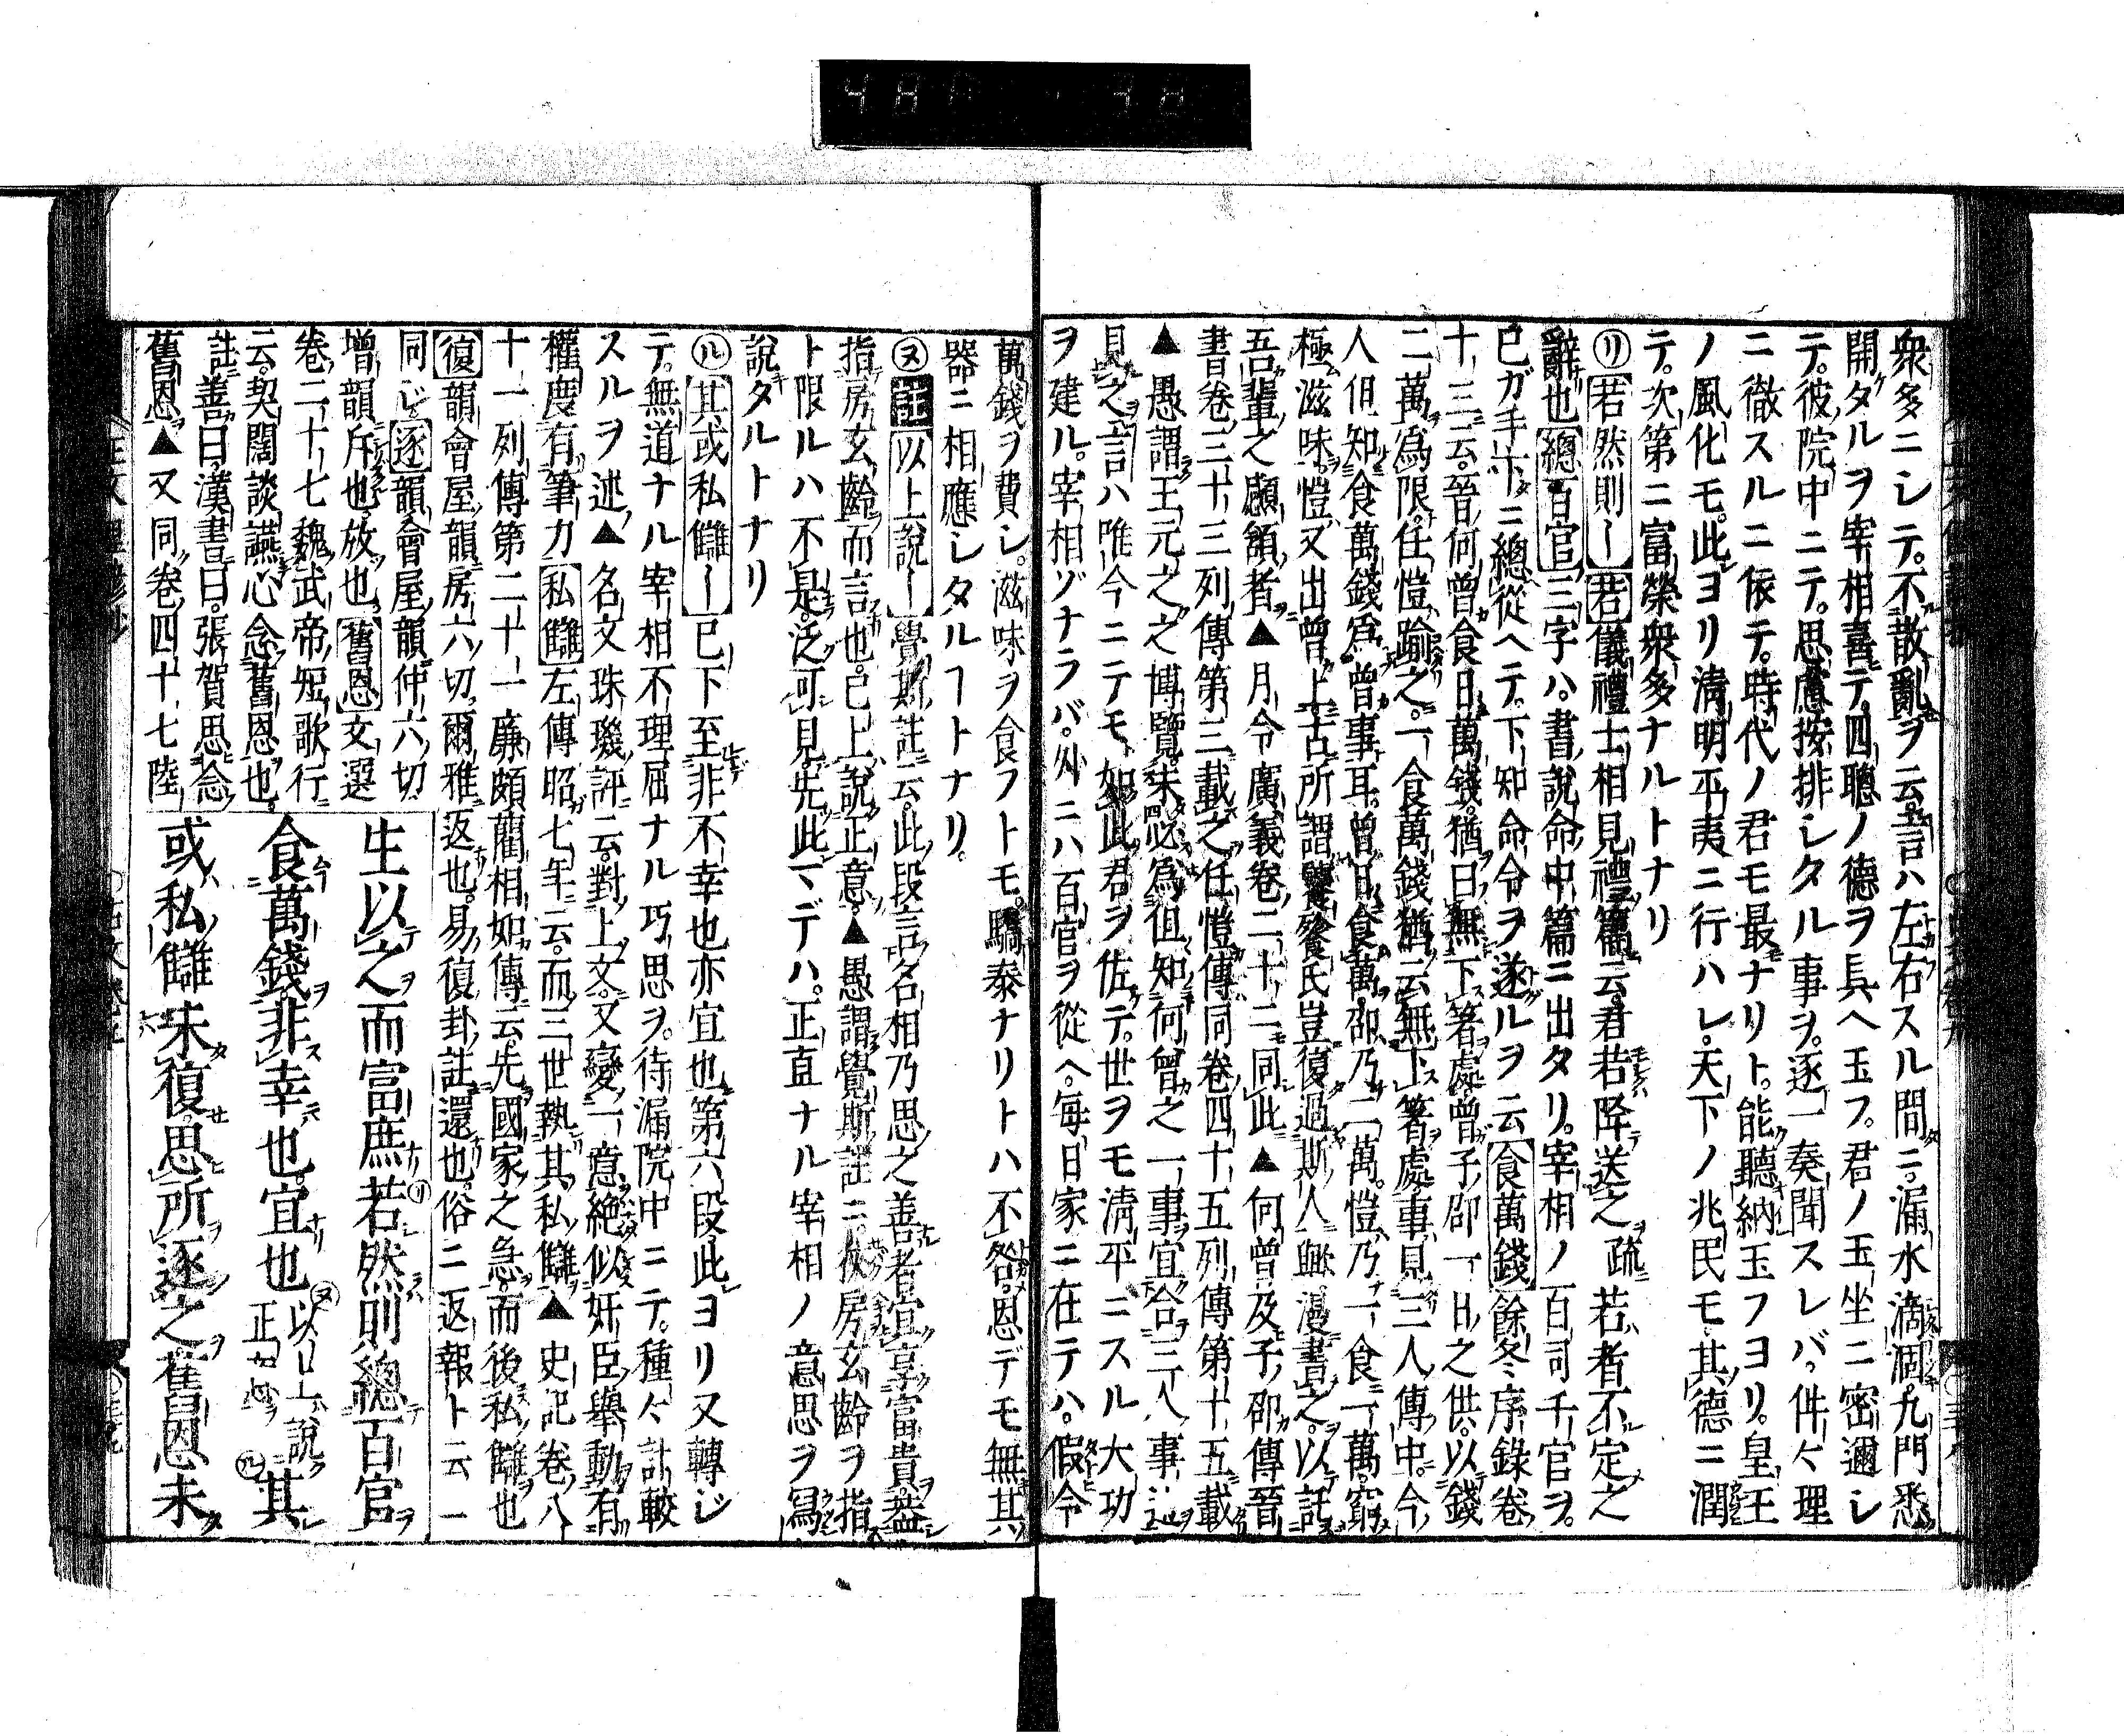 衆多ニシテ。不散亂ヲ云。言ハ左右スル間ニ。漏水滴涸。九門悉
開タルヲ宰相喜テ。四聰ノ德ヲ具ヘ玉フ。君ノ玉坐ニ密邇シ
テ。彼院中ニテ。思慮按排シタル事ヲ。逐一奏聞スレバ。件々理
ニ徹スルニ依テ。時代ノ君モ最ナリト。能聽納玉フヨリ。皇王
ノ風化モ。此ヨリ淸明平夷ニ行ハレ。天下ノ兆民モ。其德ニ潤
テ。次第ニ富榮衆多ナルトナリ
㋷若然則〡若儀禮士相見禮篇云。君若降送之疏若者不定之
辭也總百官三字ハ。書說命中篇ニ出タリ。宰相ノ百司千官ヲ。
己ガ手下ニ總從ヘテ。下知命令ヲ遂ルヲ云食萬錢餘冬序錄卷
十三云。晉何曾食日萬錢。猶曰無下箸處。曾子卲一日之供。以錢
二萬爲限。任愷踰之。一食萬錢猶云無下箸處。事見三人傳中。今
人但知食萬錢爲曾事耳。曾日食萬。卲乃二萬。愷乃一食一萬。窮
極滋味。愷又出曾上。古所謂饕餮氏豈復過斯人歟。漫書之。以託
吾輩之顑頷者▲月令廣義卷二十二同此▲何曾及子卲傳晉
書卷三十三列傳第三載之任愷傳同卷四十五列傳第十五載
▲愚謂王元之之博覽。未必爲但知何曾之一事宜合三人事
見之言ハ唯今ニテモ如此君ヲ佐テ。世ヲモ淸平ニスル大功
ヲ建ル。宰相ヅナラバ。外ニハ百官ヲ從ヘ。每日家ニ在テハ。假令
萬錢ヲ費シ。滋味ヲ食フトモ。驕泰ナリトハ不咎。恩デモ無其
器ニ相應シタルヿトナリ。
㋦註以上說〡覺斯註云。此段言名相乃思之善者宜享富貴。蓋
指房玄齡而言也。已上說正意。▲愚謂覺斯註ニ。房玄齡ヲ指
ト限ルハ不是。泛可見。先此マデハ。正直ナル宰相ノ意思ヲ寫
說タルトナリ
㋸其或私讎〡已下至非不幸也亦宜也第六段此ヨリ又轉ジ
テ。無道ナル宰相不理屈ナル巧思ヲ。待漏院中ニテ。種々計較
スルヲ述▲名文珠璣評云。對上文。又變一意。絶似奸臣擧動有
權度有筆力私讎左傳昭七年云。而三世執其私讎▲史記卷八
十一列傳第二十一廉頗藺相如傳云。先國家之急。而後私讎也
復韻會屋韻房六切。爾雅返也。易復卦註還也。俗ニ返報ト云一
同ジ逐韻會屋韻仲六切
增韻斥也。放也。舊恩文選
卷二十七魏武帝短歌行
云。契闊談讌心念舊恩也。
註善曰。漢書曰。張賀思念
舊恩▲又同卷四十七陸
生以之而富庶若然則總百官
食萬錢。非幸也。宜也以上說正其
或私讎未復。思所逐之。舊恩未